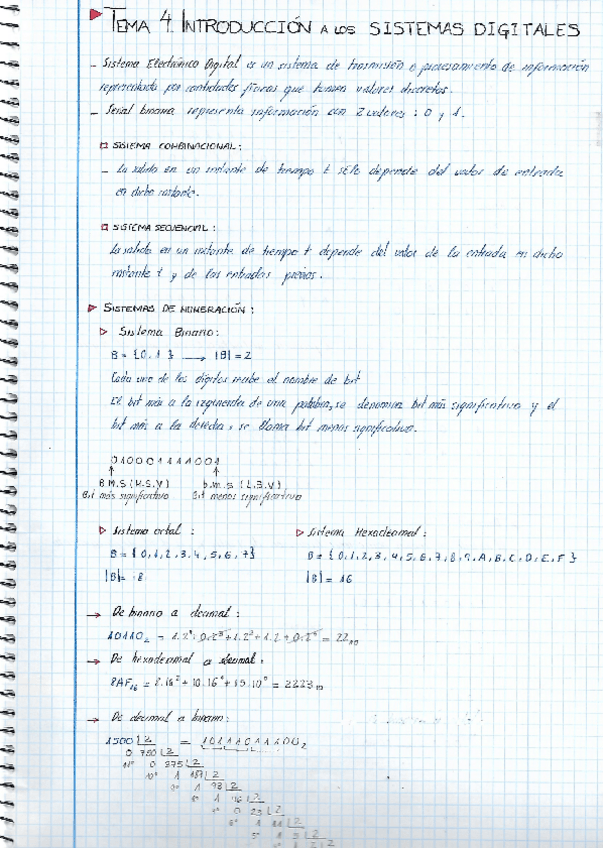 TEMA 4. INTRODUCCIÓN A LOS SISTEMAS DIGITALES
- Sistema Electrónico Digital es un sistema de trasmisión o procesamiento de información
representada por cantidades físicas que toman valores discretos.
- Señal binaria representa información con 2 valores : 0 y 1.
SISTEMA COMBINACIONAL:
- La salida en un instante de tiempo t sólo depende del valor de entrada
en dicho instante.
SISTEMA SECUENCIAL :
La salida en un instante de tiempo t depende del valor de la entrada en dicho
instante t y de las entradas previas.
SISTEMAS DE NUMERACIÓN :
Sistema Binario:
B = {0,1} → |B| = 2
Cada uno de los dígitos recibe el nombre de bit
El bit más a la izquierda de una palabra, se denomina bit más significativo y el
bit más a la derecha, se llama bit menos significativo.
010001111001
B.M.S (M.S.V) b.m.s (L.S.V)
Bit más significativo Bit menos significativo
Sistema octal : Sistema Hexadecimal :
B = {0,1,2,3,4,5,6,7} B = {0,1,2,3,4,5,6,7,8,9,A,B,C,D,E,F}
|B| = 8 |B| = 16
→ De binario a decimal :
10110₂ = = 22₁₀
→ De hexadecimal a decimal :
8AF₁₆ = = 2223₁₀
→ De decimal a binario:
1500 |2 = 10111011100₂
0 750 |2
11º 0 375 |2
10º 1 187 |2
9º 1 93 |2
8º 1 46 |2
0 23 |2
6º 1 11 |2
5º 1 5 |2